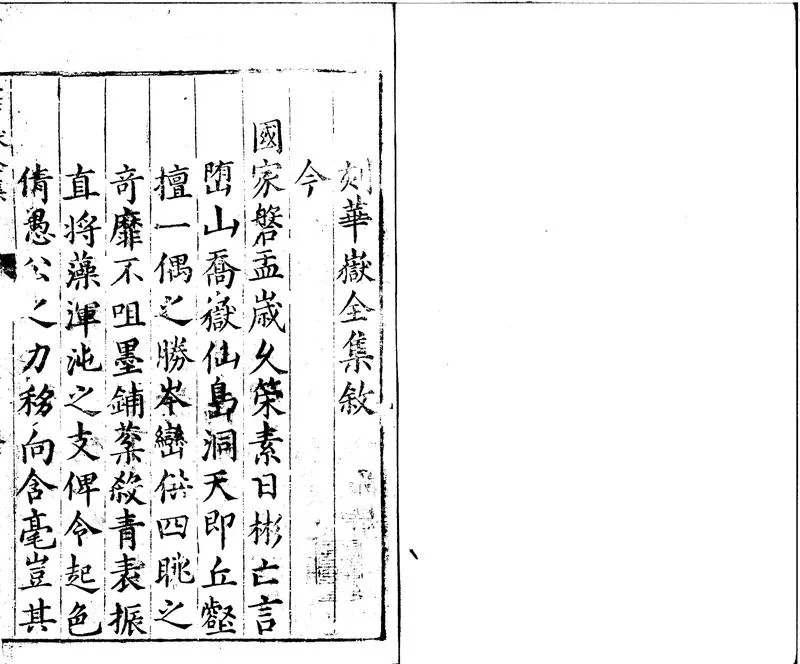 刻華嶽全集敘
今
國家磐盂歲久荣素日彬亡言
嶞山喬嶽仙島洞天即丘壑
擅一偶之勝岑巒供四眺之
奇靡不咀墨鋪蘂殺青表振
直將藻渾沌之支俾令起色
倩愚公之力移向含毫豈其